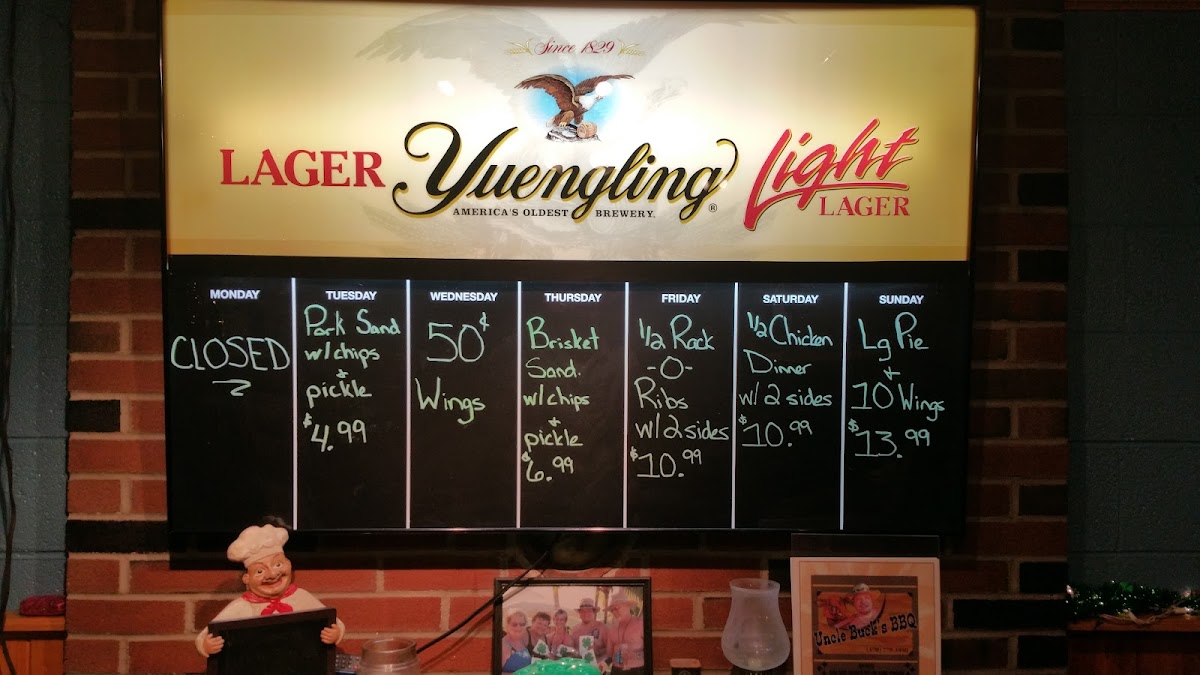 Since 1829
LAGER
Yuengling®
AMERICA'S OLDEST BREWERY.
Light
LAGER
MONDAY
CLOSED
TUESDAY
Pork Sand
w/chips
+
pickle
$4.99
WEDNESDAY
50¢
Wings
THURSDAY
Brisket
Sand.
w/chips
+
pickle
$6.99
FRIDAY
1/2 Rack
-O-
Ribs
w/2 sides
$10.99
SATURDAY
1/2 Chicken
Dinner
w/ 2 sides
$10.99
SUNDAY
Lg Pie
+
10 Wings
$13.99
Uncle Buck's BBQ